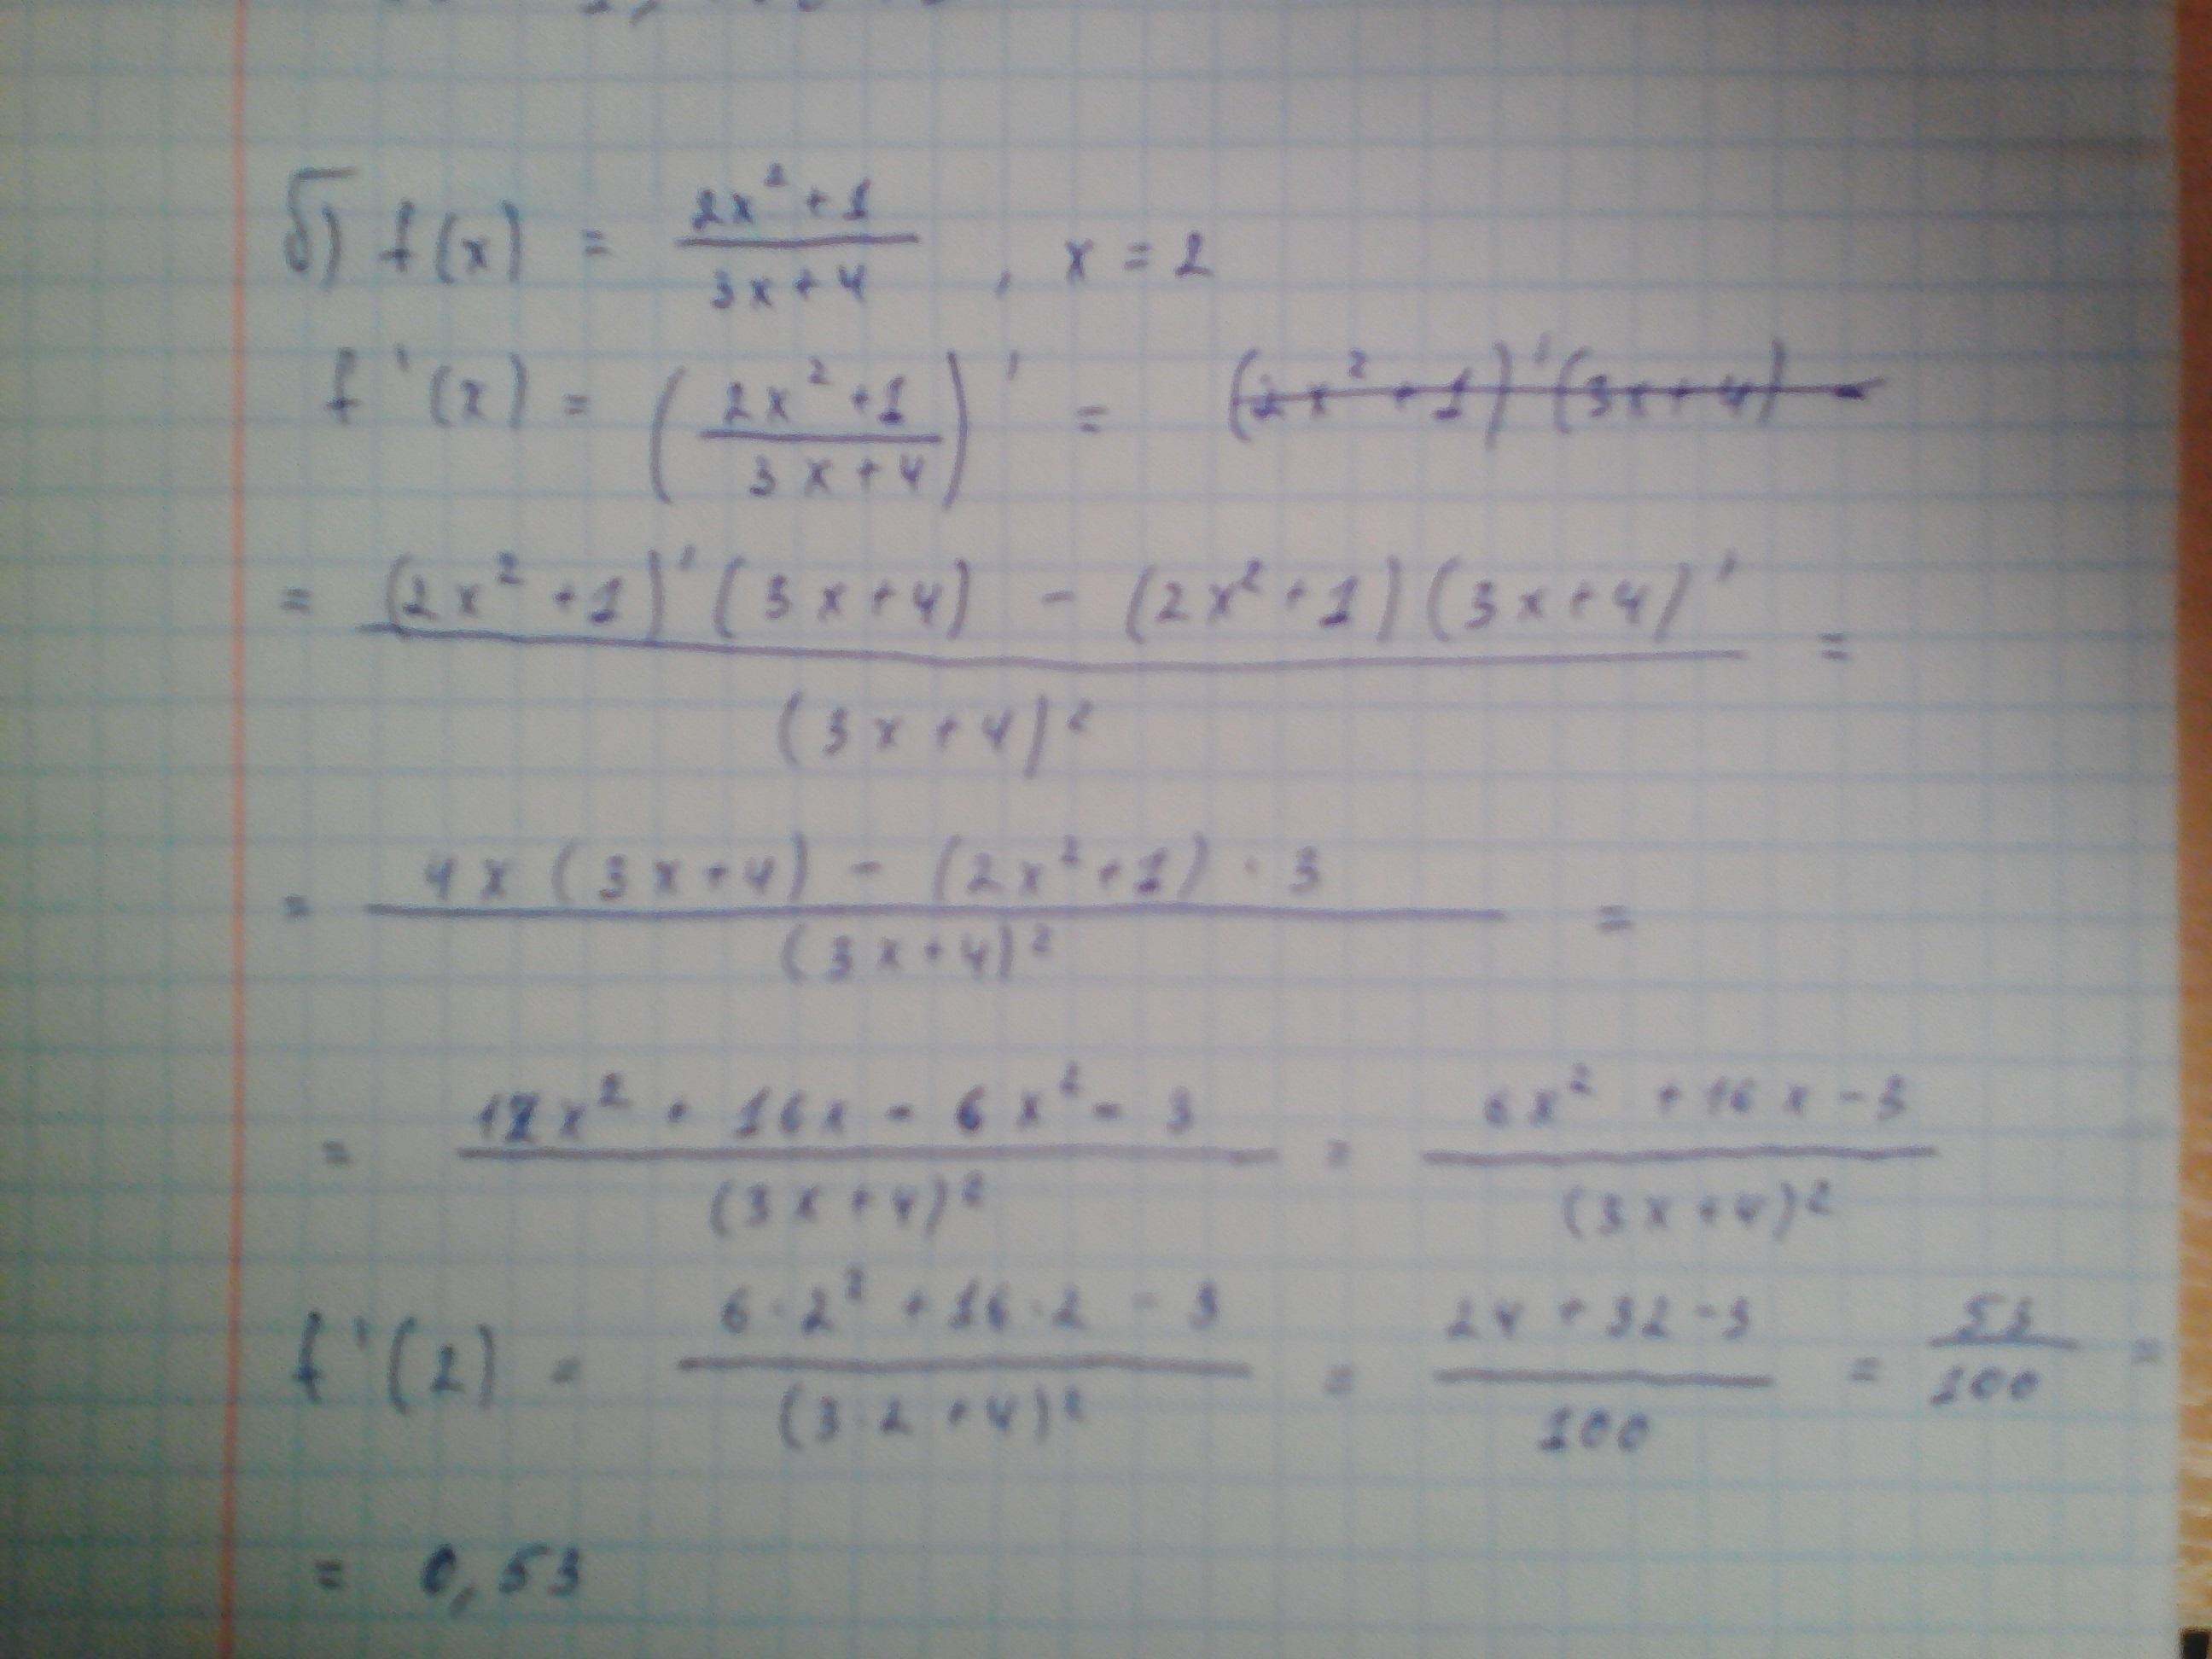 б) f(x) = (2x² + 1)/(3x + 4), x = 2
f'(x) = ((2x² + 1)/(3x + 4))' = (2x² + 1)'(3x + 4) -
= ((2x² + 1)'(3x + 4) - (2x² + 1)(3x + 4)')/(3x + 4)² =
= (4x(3x + 4) - (2x² + 1) · 3)/(3x + 4)² =
= (12x² + 16x - 6x² - 3)/(3x + 4)² = (6x² + 16x - 3)/(3x + 4)²
f'(2) = (6 · 2² + 16 · 2 - 3)/(3 · 2 + 4)² = (24 + 32 - 3)/100 = 53/100 =
= 0,53